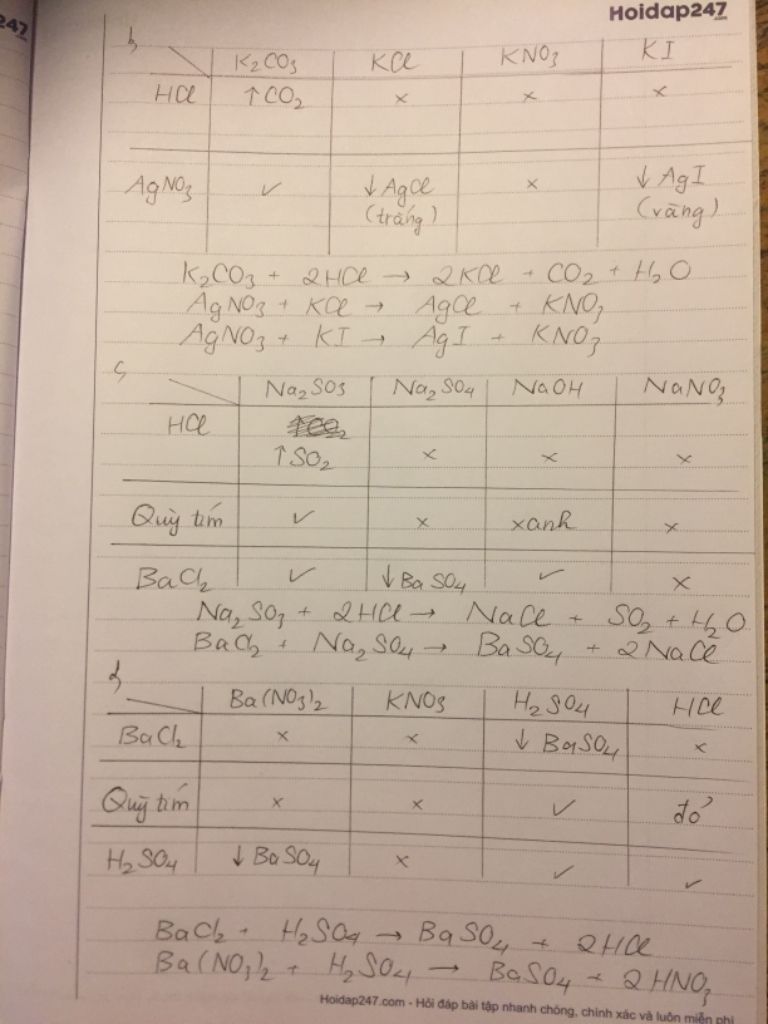 247
Hoidap247
b,
K₂CO₃ KCl KNO₃ KI
HCl ↑CO₂ × × ×
AgNO₃ ✓ ↓AgCl × ↓AgI
(trắng) (vàng)
K₂CO₃ + 2HCl → 2KCl + CO₂ + H₂O
AgNO₃ + KCl → AgCl + KNO₃
AgNO₃ + KI → AgI + KNO₃
c,
Na₂SO₃ Na₂SO₄ NaOH NaNO₃
HCl
↑SO₂ × × ×
Quỳ tím ✓ × xanh ×
BaCl₂ ✓ ↓BaSO₄ ✓ ×
Na₂SO₃ + 2HCl → NaCl + SO₂ + H₂O
BaCl₂ + Na₂SO₄ → BaSO₄ + 2NaCl
d,
Ba(NO₃)₂ KNO₃ H₂SO₄ HCl
BaCl₂ × × ↓ BaSO₄ ×
Quỳ tím × × ✓ đỏ
H₂SO₄ ↓BaSO₄ × ✓ ✓
BaCl₂ + H₂SO₄ → BaSO₄ + 2HCl
Ba(NO₃)₂ + H₂SO₄ → BaSO₄ + 2HNO₃
Hoidap247.com - Hỏi đáp bài tập nhanh chóng, chính xác và luôn miễn phí